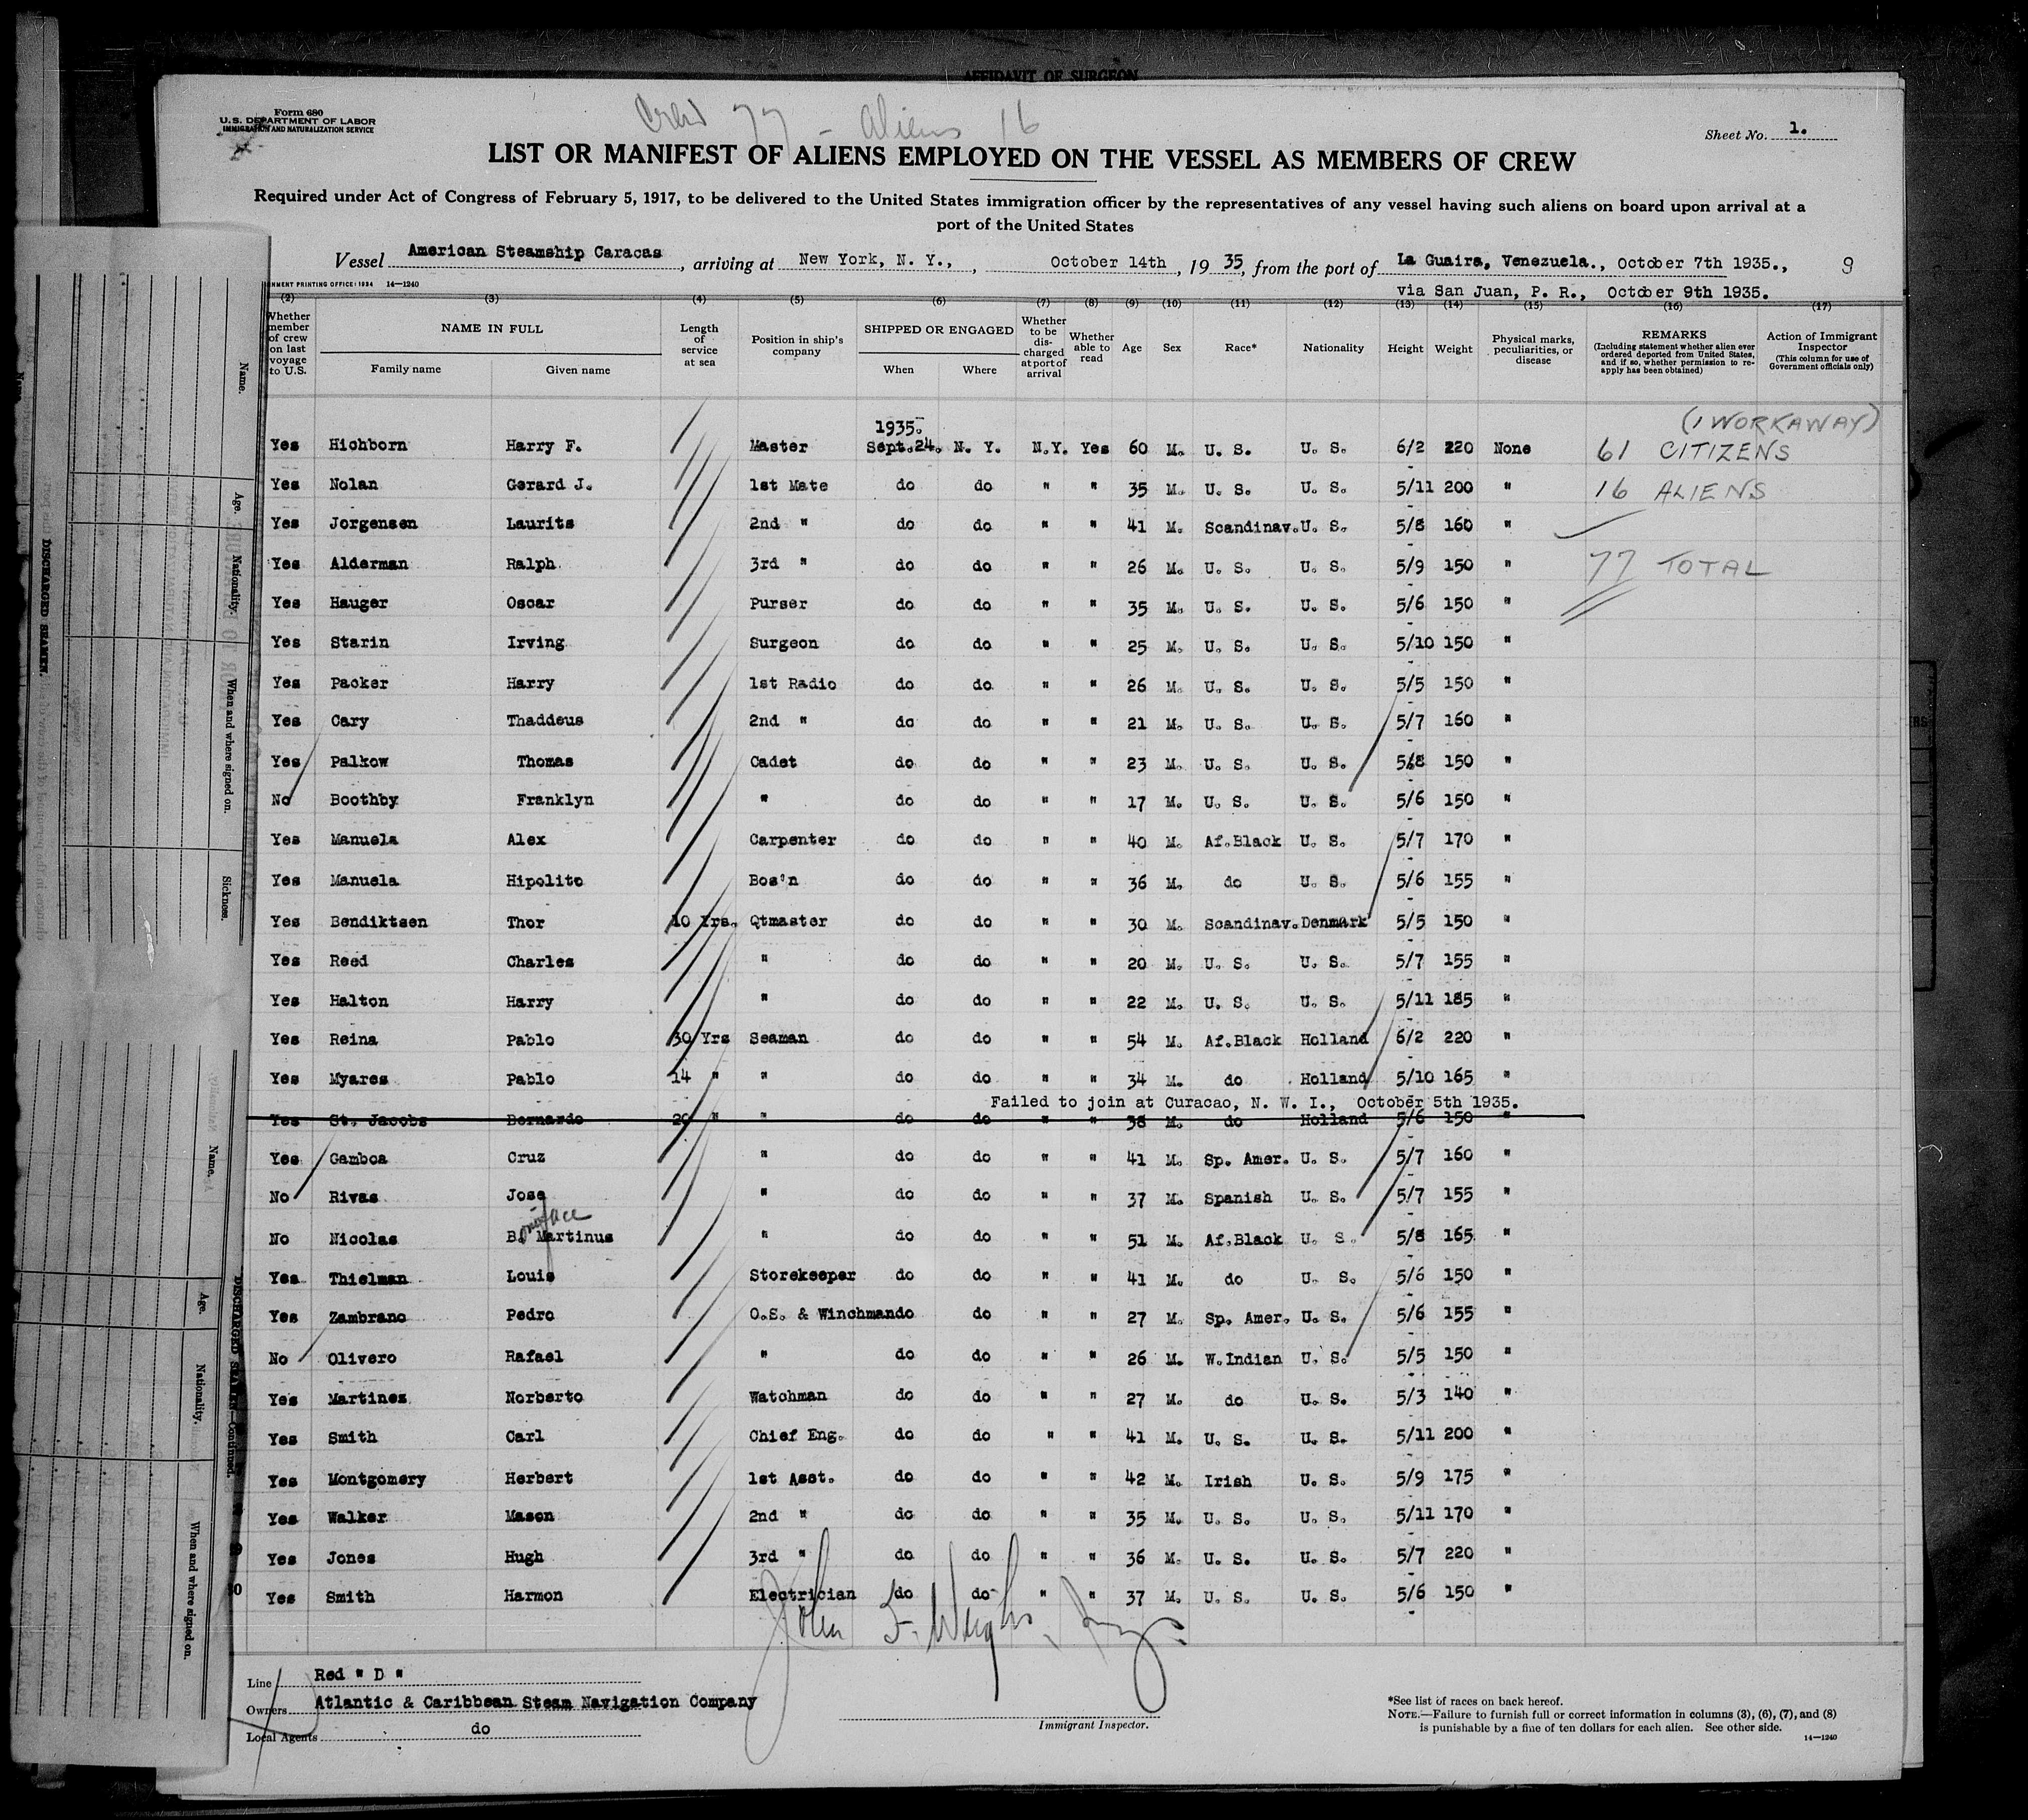 AFFIDAVIT OF SURGEON
Crew 77 - aliens 16
Form 680
U.S. DEPARTMENT OF LABOR
IMMIGRATION AND NATURALIZATION SERVICE
Sheet No. 1.
LIST OR MANIFEST OF ALIENS EMPLOYED ON THE VESSEL AS MEMBERS OF CREW
Required under Act of Congress of February 5, 1917, to be delivered to the United States immigration officer by the representatives of any vessel having such aliens on board upon arrival at a
port of the United States
Vessel American Steamship Caracas, arriving at New York, N. Y., , October 14th, 1935, from the port of La Guaira, Venezuela., October 7th 1935., 9
via San Juan, P. R., October 9th 1935.
NMENT PRINTING OFFICE: 1934 14—1240
(2) (3) (4) (5) (6) (7) (8) (9) (10) (11) (12) (13) (14) (15) (16) (17)
Whether member of crew on last voyage to U.S.
NAME IN FULL
Family name Given name
Length of service at sea
Position in ship's company
SHIPPED OR ENGAGED
When Where
Whether to be discharged at port of arrival
Whether able to read
Age Sex Race* Nationality Height Weight
Physical marks, peculiarities, or disease
REMARKS
(Including statement whether alien ever ordered deported from United States, and if so, whether permission to reapply has been obtained)
Action of Immigrant Inspector
(This column for use of Government officials only)
(1 WORKAWAY)
1935.
Yes Hichborn Harry F. Master Sept.24. N. Y. N.Y. Yes 60 M. U. S. U. S. 6/2 220 None 61 CITIZENS
Yes Nolan Gerard J. 1st Mate do do " " 35 M. U. S. U. S. 5/11 200 " 16 ALIENS
Yes Jorgensen Laurits 2nd " do do " " 41 M. Scandinav. U. S. 5/8 160 "
Yes Alderman Ralph 3rd " do do " " 26 M. U. S. U. S. 5/9 150 " 77 TOTAL
Yes Hauger Oscar Purser do do " " 35 M. U. S. U. S. 5/6 150 "
Yes Starin Irving Surgeon do do " " 25 M. U. S. U. S. 5/10 150 "
Yes Packer Harry 1st Radio do do " " 26 M. U. S. U. S. 5/5 150 "
Yes Cary Thaddeus 2nd " do do " " 21 M. U. S. U. S. 5/7 160 "
Yes Palkow Thomas Cadet do do " " 23 M. U. S. U. S. 5/8 150 "
No Boothby Franklyn " do do " " 17 M. U. S. U. S. 5/6 150 "
Yes Manuela Alex Carpenter do do " " 40 M. Af.Black U. S. 5/7 170 "
Yes Manuela Hipolito Bos'n do do " " 36 M. do U. S. 5/6 155 "
Yes Bendiktsen Thor 10 Yrs. Qtmaster do do " " 30 M. Scandinav. Denmark 5/5 150 "
Yes Reed Charles " do do " " 20 M. U. S. U. S. 5/7 155 "
Yes Halton Harry " do do " " 22 M. U. S. U. S. 5/11 185 "
Yes Reina Pablo 30 Yrs Seaman do do " " 54 M. Af.Black Holland 6/2 220 "
Yes Myares Pablo 14 " " do do " " 34 M. do Holland 5/10 165 "
Failed to join at Curacao, N. W. I., October 5th 1935.
Yes St. Jacobs Bernardo 20 " " do do " " 38 M. do Holland 5/6 150 "
Yes Gamboa Cruz " do do " " 41 M. Sp. Amer. U. S. 5/7 160 "
No Rivas Jose " do do " " 37 M. Spanish U. S. 5/7 155 "
No Nicolas B. Martinus " do do " " 51 M. Af.Black U. S. 5/8 165 "
Yes Thielman Louis Storekeeper do do " " 41 M. do U. S. 5/6 150 "
Yes Zambrano Pedro O.S. & Winchman do do " " 27 M. Sp. Amer. U. S. 5/6 155 "
No Olivero Rafael " do do " " 26 M. W.Indian U. S. 5/5 150 "
Yes Martinez Norberto Watchman do do " " 27 M. do U. S. 5/3 140 "
Yes Smith Carl Chief Eng. do do " " 41 M. U. S. U. S. 5/11 200 "
Yes Montgomery Herbert 1st Asst. do do " " 42 M. Irish U. S. 5/9 175 "
Yes Walker Mason 2nd " do do " " 35 M. U. S. U. S. 5/11 170 "
Yes Jones Hugh 3rd " do do " " 36 M. U. S. U. S. 5/7 220 "
Yes Smith Harmon Electrician do do " " 37 M. U. S. U. S. 5/6 150 "
Line Red " D "
Owners Atlantic & Caribbean Steam Navigation Company
Local Agents do
John F.
Immigrant Inspector.
*See list of races on back hereof.
NOTE.—Failure to furnish full or correct information in columns (3), (6), (7), and (8)
is punishable by a fine of ten dollars for each alien. See other side.
14—1240
DISCHARGED SEAMEN.
Name.
Age.
Nationality.
When and where signed on.
Sickness.
DISCHARGED SEAMEN—Continued.
Name.
Age.
Nationality.
When and where signed on.